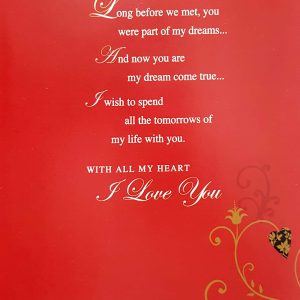 Long before we met, you
were part of my dreams...
And now you are
my dream come true...
I wish to spend
all the tomorrows of
my life with you.
WITH ALL MY HEART
I Love You